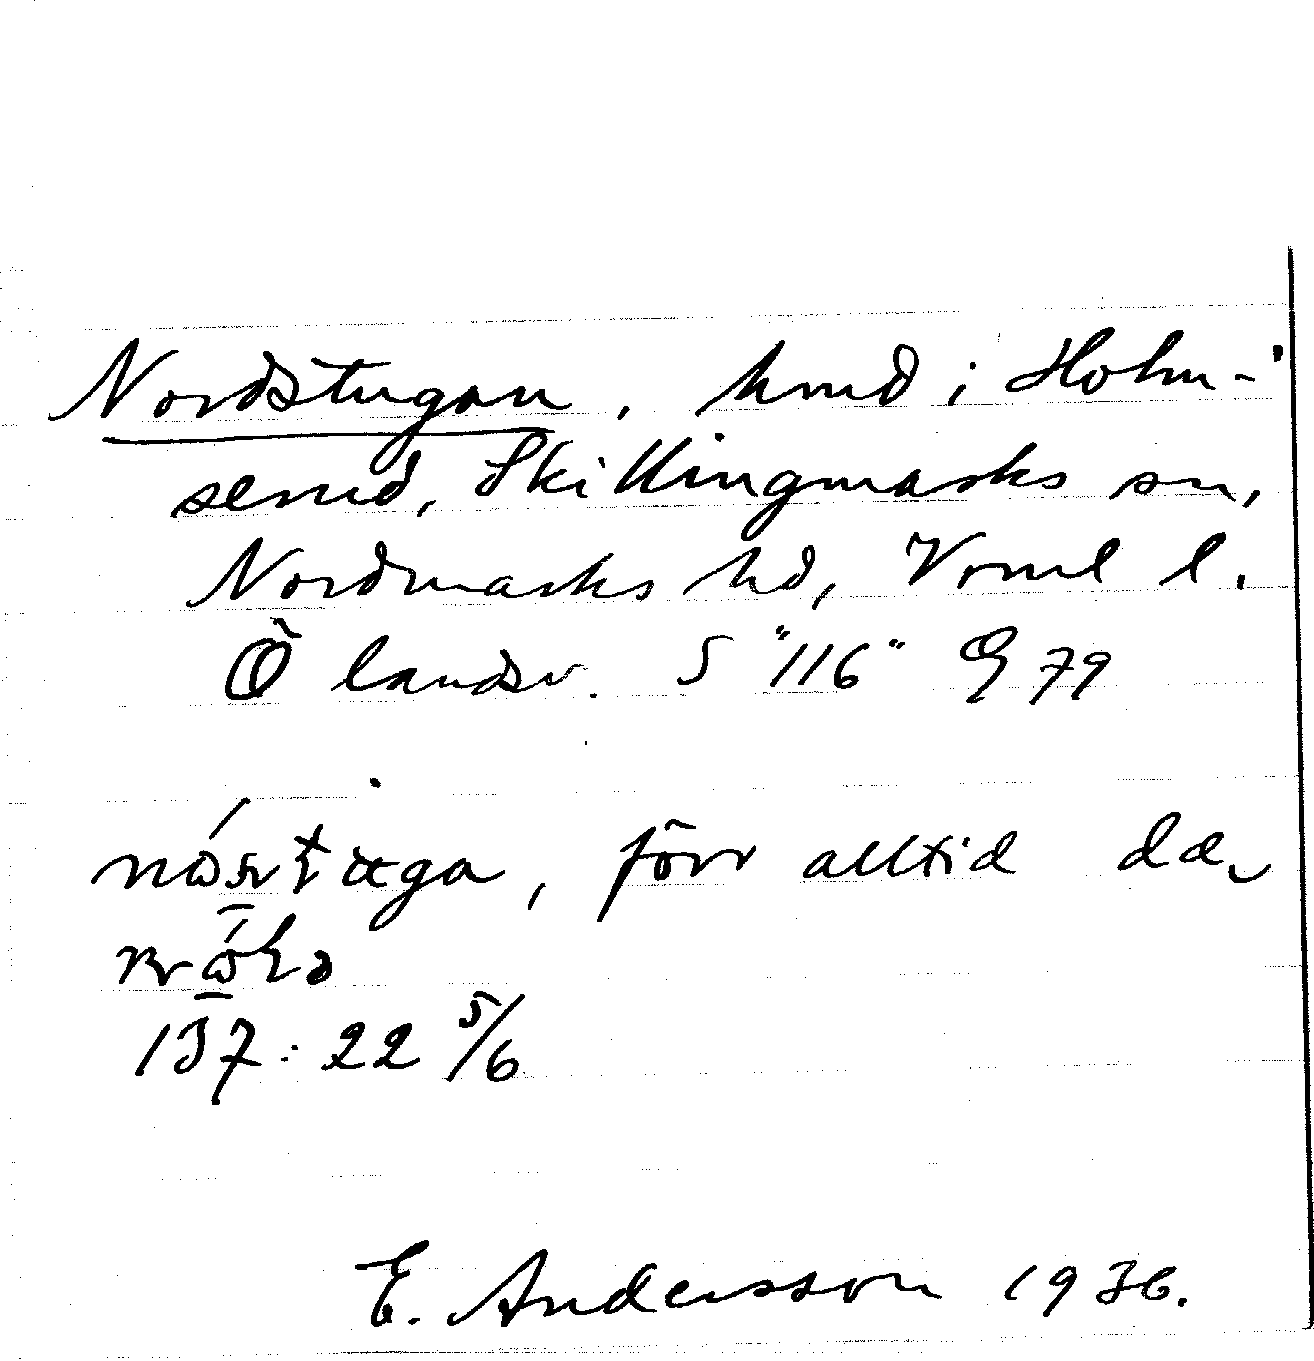 Nordstugan, hmd i Holm-
serud, Skillingmarks sn,
Nordmarks hd, Vrml l.
Ö landsv. S "116" Q 79
förr alltid
137:22 5/6
E. Andersson 1936.